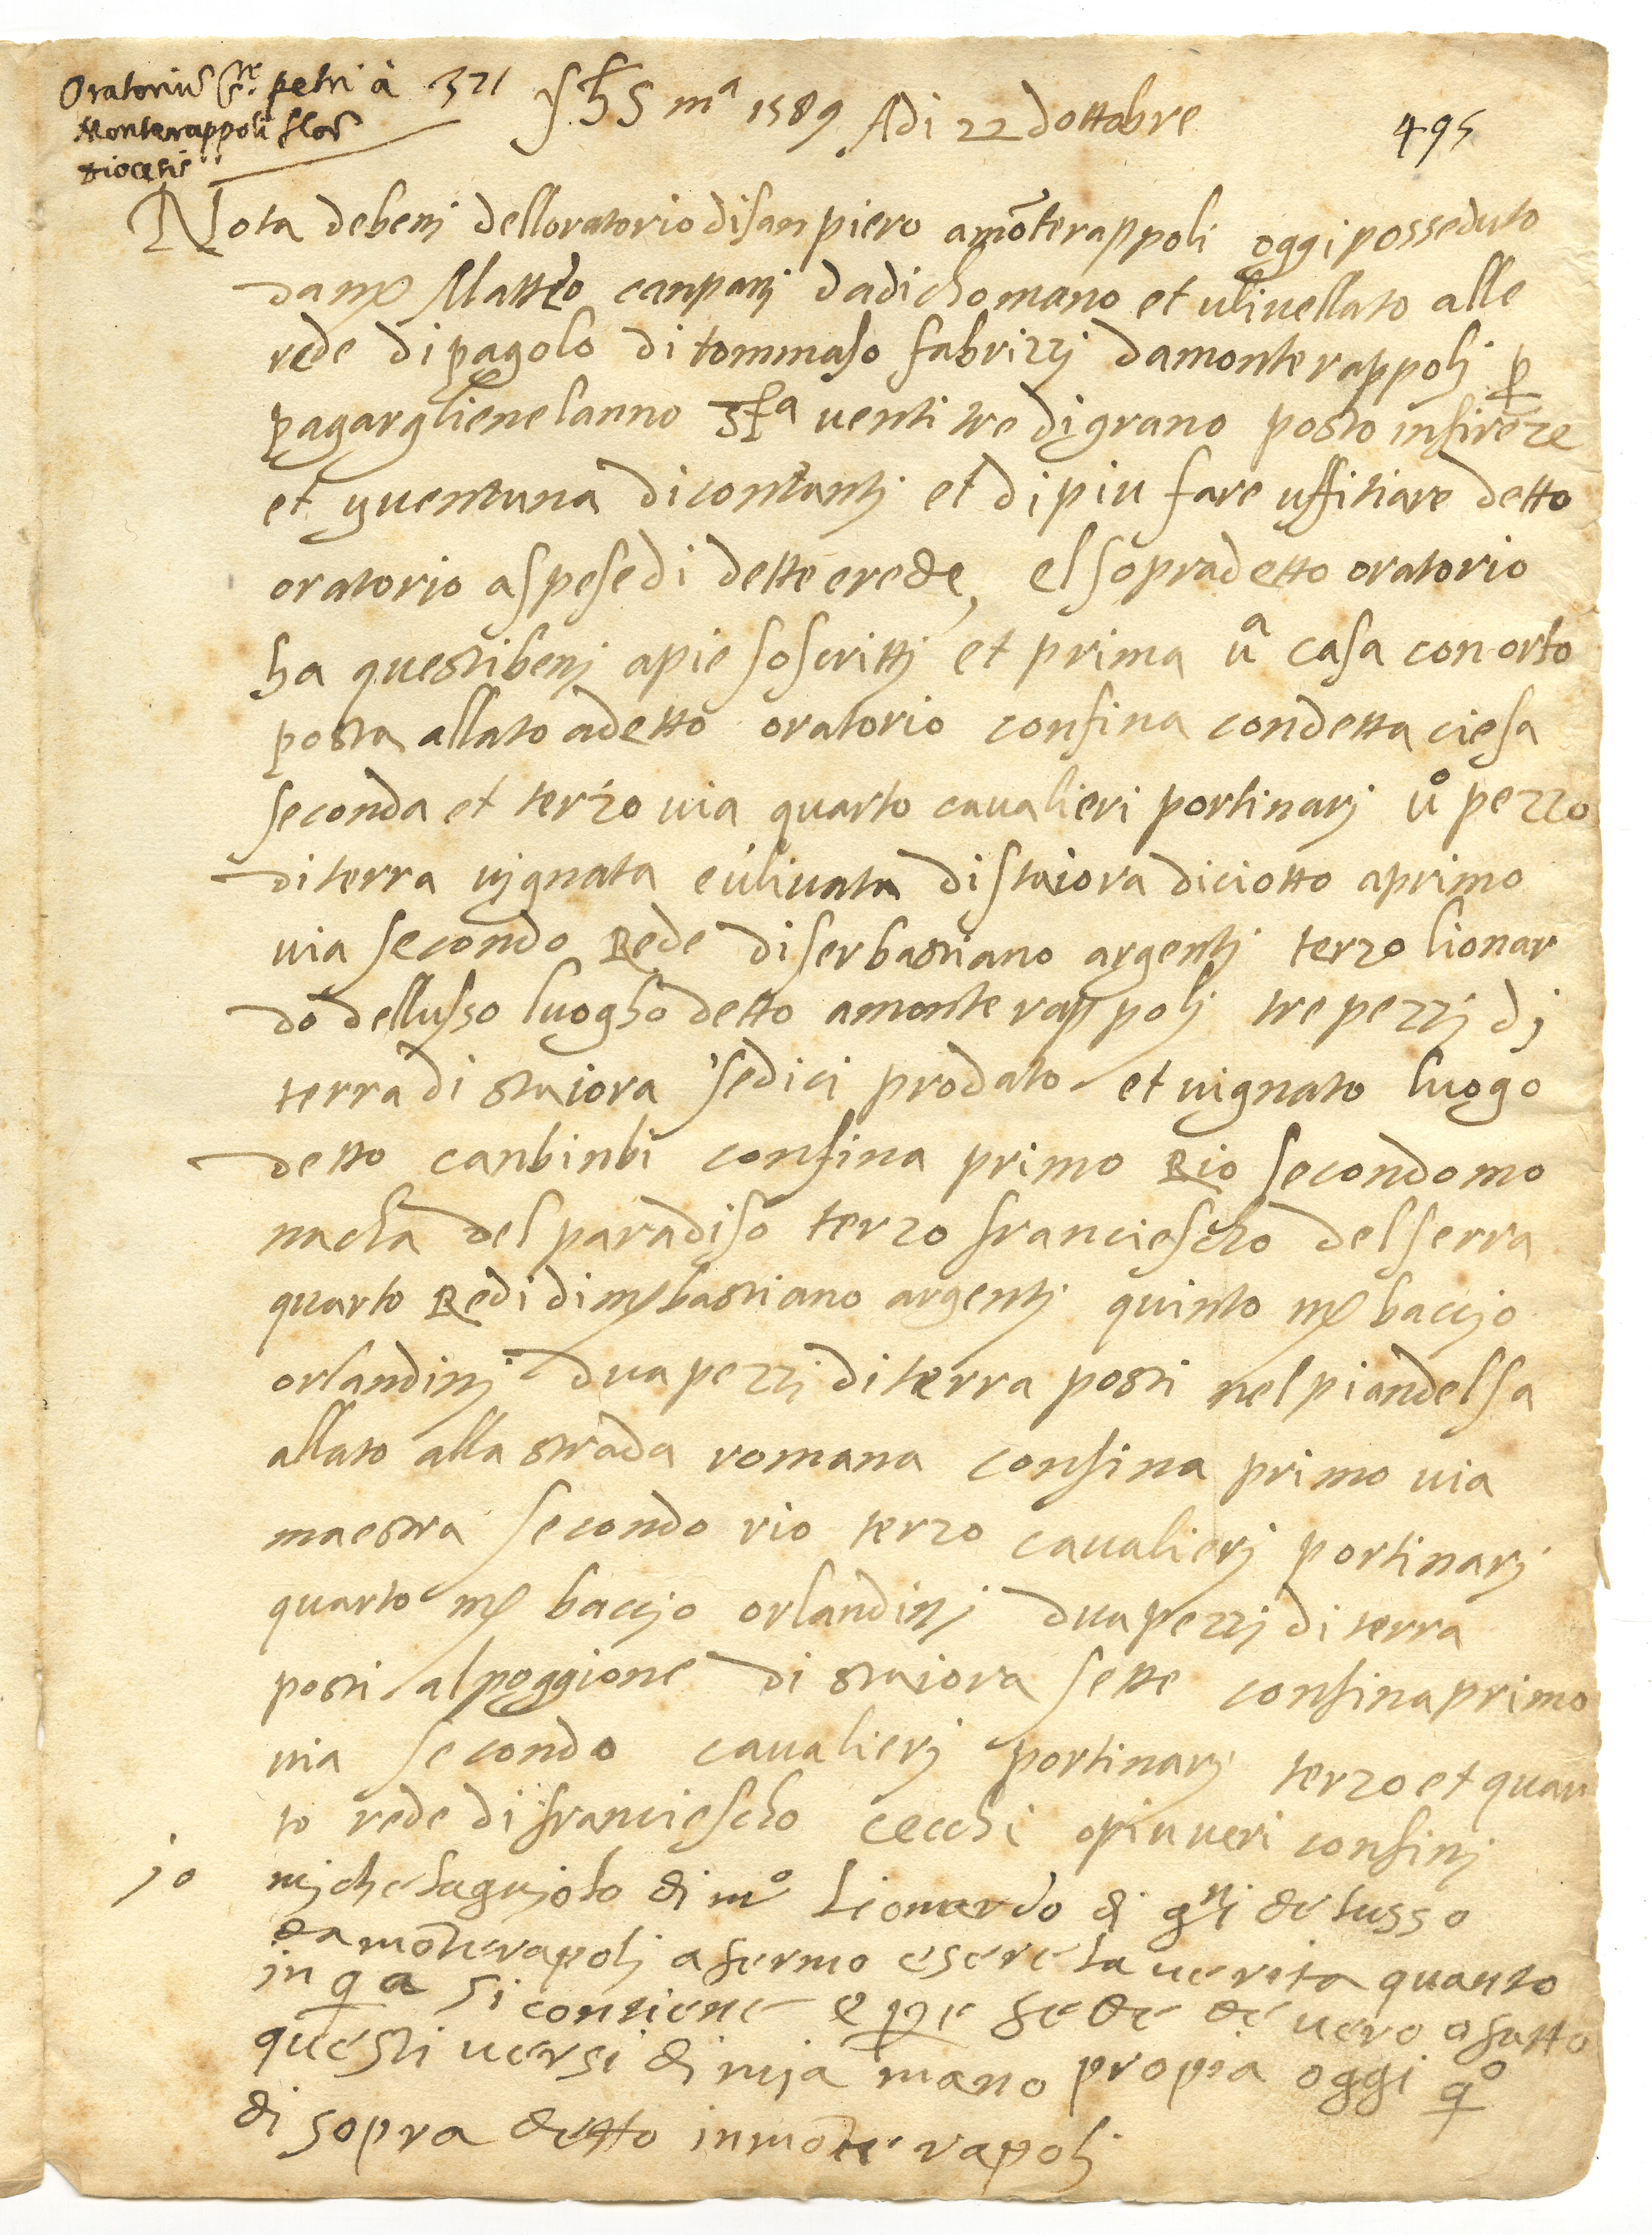 Oratoriũ S.te petri à 321
Monterappoli flor̃
diocesis
yhS mª 1589 Adi 22 dottobre
495
Nota debenj delloratorio disanpiero amõterappoli oggi posseduto
da mſ Matteo canpanj dadichomano et ulivellato alle
rede di pagolo di tommaso fabrizzj damonterappolj p
pagarglienelanno stª ventitre digrano posto infirẽze
et yventuna dicontantj et dipiu fare uffitiare detto
oratorio aspesedi detteerede, elsopradetto oratorio
ha questibenj apie soscrittj et prima uª casa conorto
posta allato adetto oratorio confina condetta ciesa
seconda et terzo via quarto cavalieri portinarj uº pezzo
diterra vignata eulivata distaiora diciotto aprimo
via secondo Rede diserbastiano argentj terzo lionar
do dellusso luogho detto amonterappolj tre pezzj dj
terra di staiora sedici prodato et vignato luogo
detto canbinbi confina primo Rio secondo mo
nacha del paradiso terzo franciescho delserra
quarto Redi di mſ bastiano argentj quinto mſ baccjo
orlandinj dua pezzj diterra posti nelpiandelsa
allato alla strada romana confina primo via
maestra secondo rio terzo cavalierj portinarj
quarto mſ baccjo orlandinj dua pezzj di terra
posti alpoggione di staiora sette confinaprimo
via secondo cavalierj portinarj terzo et quar
to rede di franciescho cecchi opiuveri confinj
jo mjchelagnjolo di mº Lionardo di gⁿⁱ delusso
damõterapolj afermo esere la verita quanto
in qª si contiene e p fede de vero o fatto
questi versi di mja mano propia oggi qº
di sopra detto inmõterapolj